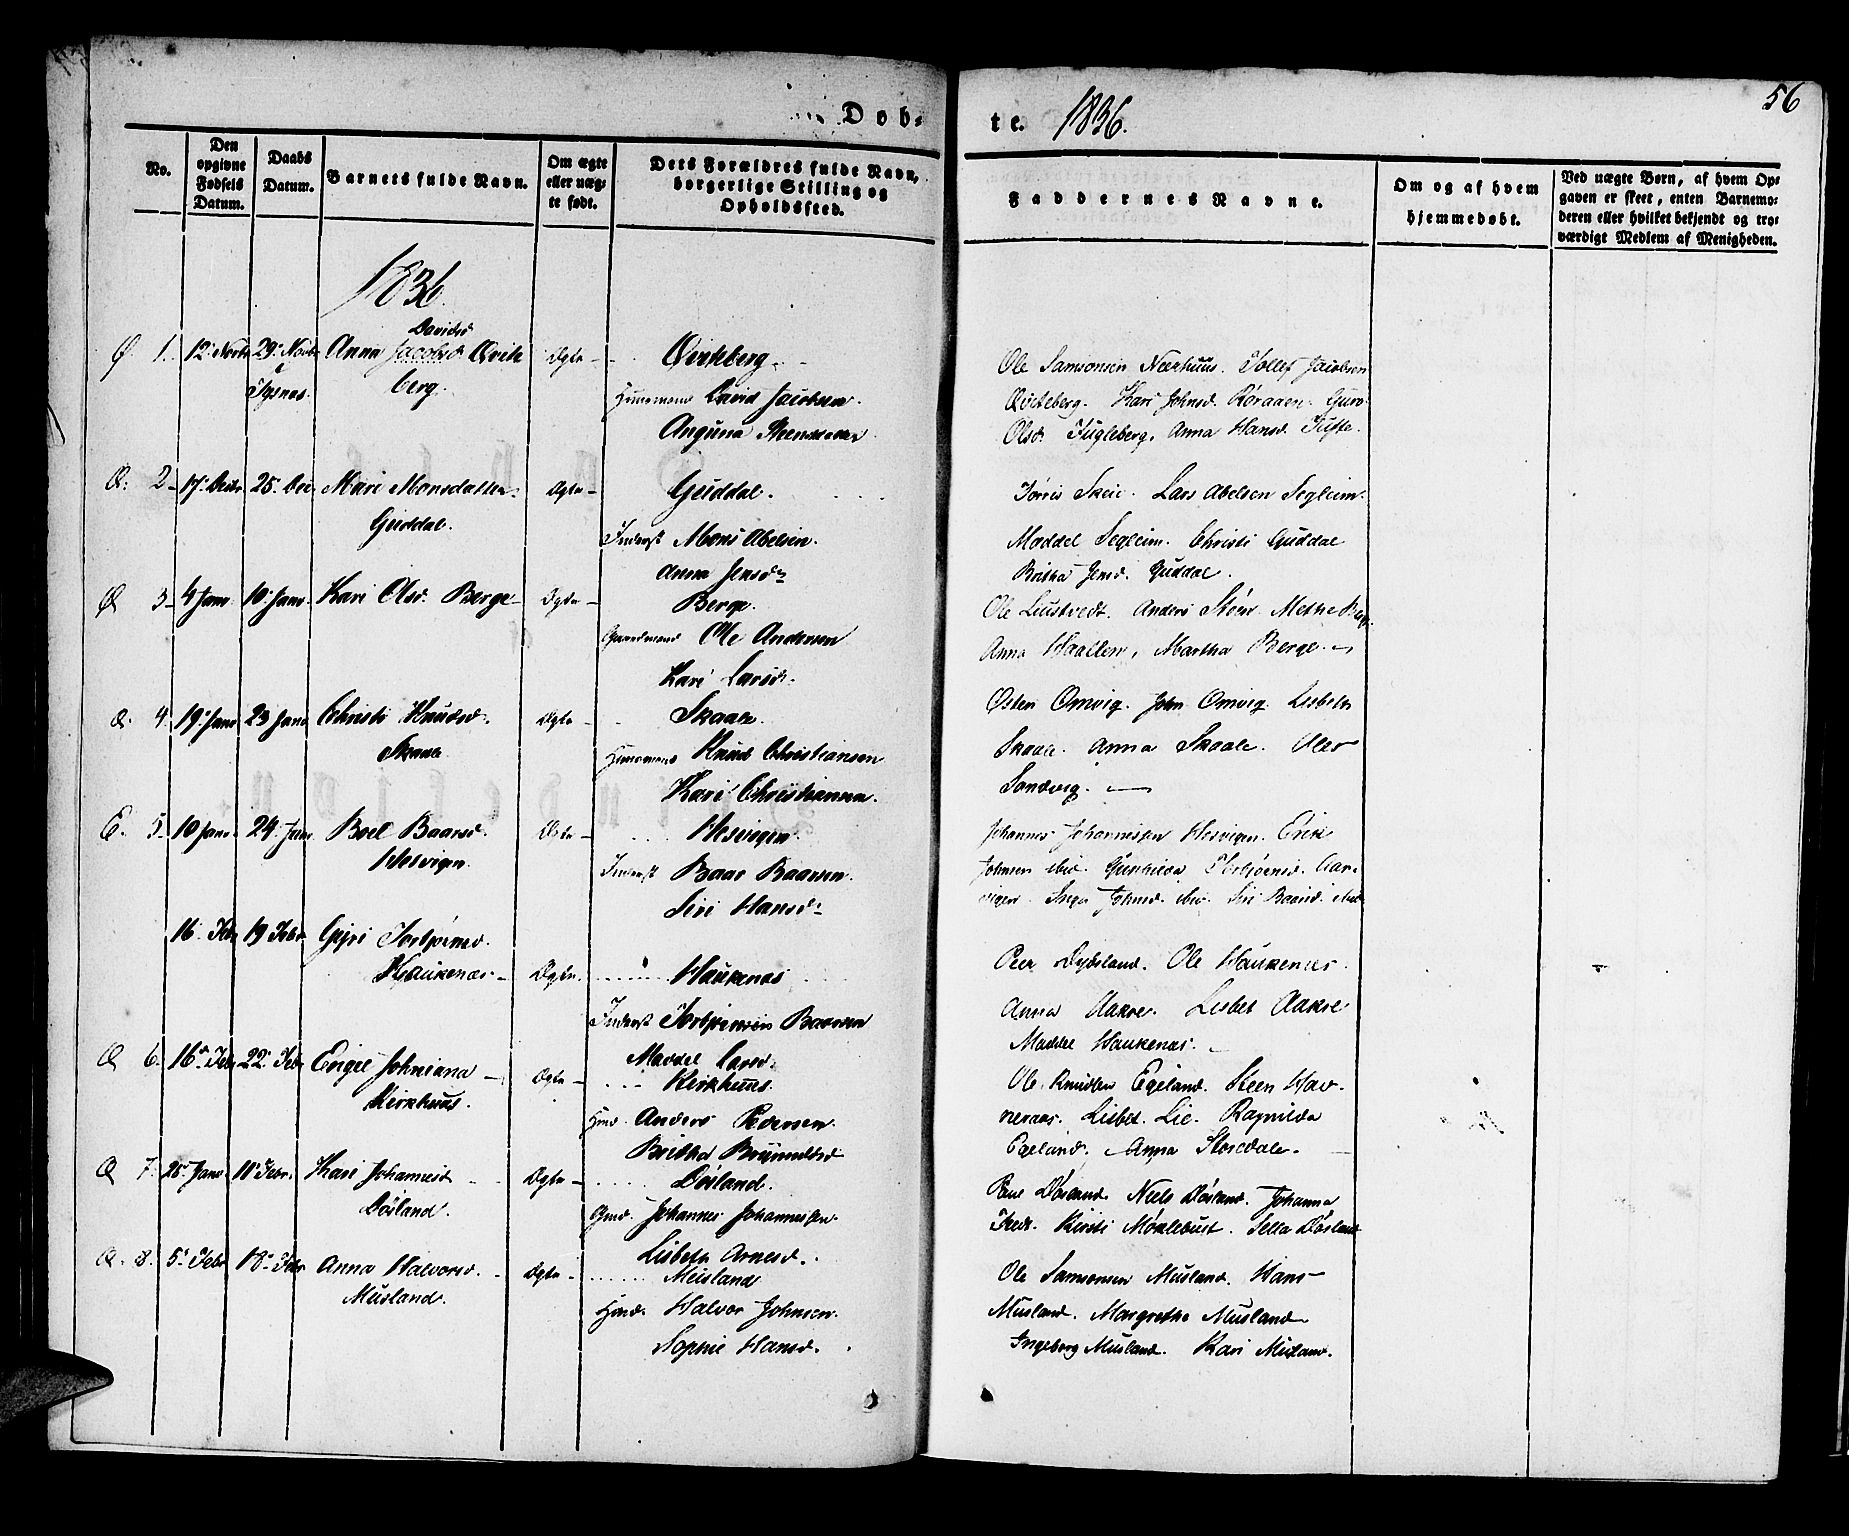 Døb-
te.
1836.
56
No.
Den opgivne Fødsels Datum.
Daabs Datum.
Barnets fulde Navn.
Om ægte eller uæg-te født.
Dets Forældres fulde Navn, borgerlige Stilling og Opholdssted.
Faddernes Navne.
Om og af hvem hjemmedøbt.
Ved uægte Børn, af hvem Op-
gaven er skeet, enten Barnemo-
deren eller hvilket bekjendt og tro-
værdigt Medlem af Menigheden.
1836.
Davidsd
1. 12. Novbr 29. Novbr Anna Jacobsd Qvite Ægte Qviteberg.
Tysnes. berg. Huusmand David Jacobsen.
Ole Samsonsen Nærhuus. Tollef Jacobsen
Qviteberg. Kari Johnsd. Røraaen. Guro
Olsd. Fugleberg, Anna Hansd. Tufte.
2 17. Decbr 25. Dec. Mari Monsdatter Ægte Guddal.
Guddal. Inderst Mons Abelsen.
Anna Jensd.
Torris Skeie. Lars Abelsen Segleim.
Maddel Segleim. Christi Guddal
Britha Jensd. Guddal.
3 4 Janr. 10. Janr Kari Olsd. Berge Ægte Berge.
Gaardmand Ole Andersen
Kari Larsd.
Ole Lustvedt. Anders Steen Methe Berge
Anna Haallem, Martha Berge.
4. 19. Janr 23 Janr Christi Knudsd. Ægte Skaale.
Skaale Huusmand Knud Christiansen
Kari Christiansen.
Østen Omvig. John Omvig. Lisbeth
Skaale. Anna Skaale. Oler
Sandvig.
E. 5. 10 Janr. 24. Janr Boel Baarsd. Ægte Hesvigen.
Hesvigen. Inderst Baar Baarsen.
Siri Hansd.
Johannes Johannessen Hesvigen. Erik
Johnsen ibid. Gunhilda Torbjørnsd. Aar-
vigen. Inga Johnsd. ibid. Siri Baarsd. ibid.
16. Febr 19 Febr Gyri Torbjørnsd.
Haukenæs Ægte. Haukenæs
Inderst Torbjørnsen Baarsen
Maddel Larsd.
Peer Dysland. Ole Haukenes.
Anna Aakre. Lisbet Aakre
Maddel Haukenæs.
6. 16. Febr 22. Febr Engel Johniana Ægte Kirkhuus.
Kirkhuus. Hmd. Anders Pedersen.
Britha Brynnildsd
Ole Knudsen Egeland. Steen Hav-
neraas. Lisbet Lie. Ragnilda
Egeland. Anna Stordale.
7. 25. Janr 11. Febr. Kari Johannesd Ægte Døsland.
Døsland. Gmd. Johannes Johannessen.
Lisbeta Arnesd.
Paul Døsland. Niels Døsland. Johanna
Fred. Kirsti Møklebust. Sella Døsland
8. 5. Febr 18. Febr Anna Halvorsd. Ægte Meisland
Musland. Hmd. Halvor Johnsen.
Sophie Hansd.
Ole Samsonsen Musland. Hans
Musland. Margrethe Musland
Ingeborg Musland. Kari Musland.